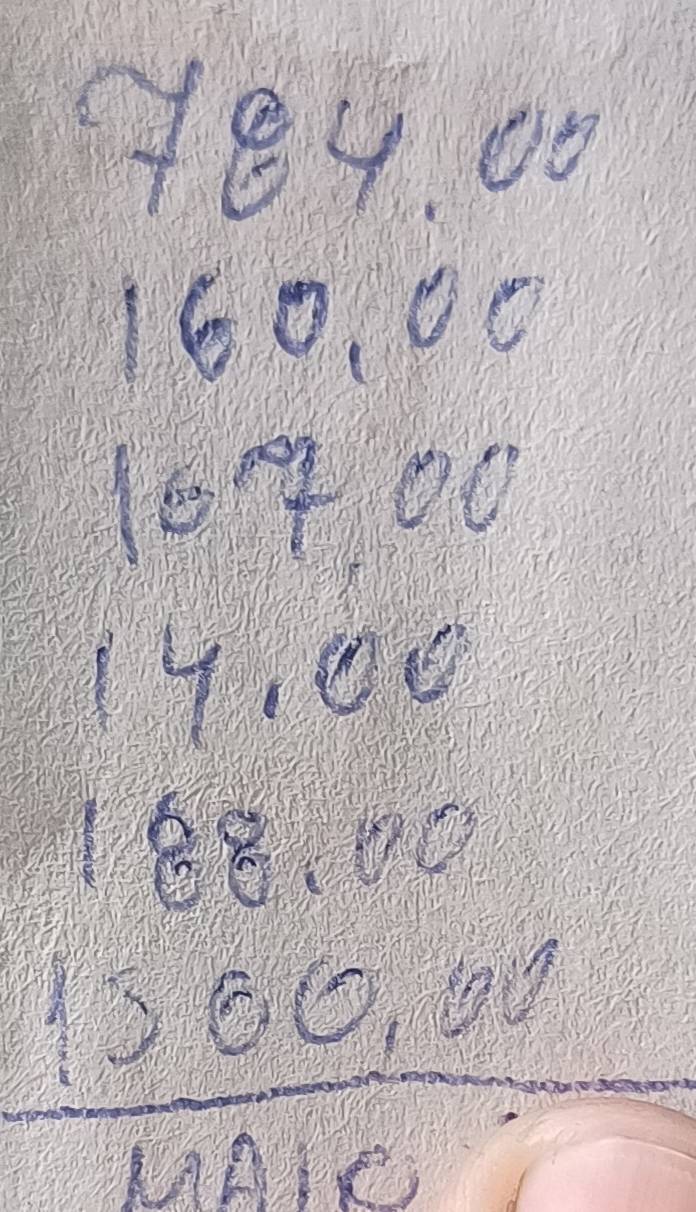 784.00
160,00
107,00
14.00
188.00
1500,00
MAIO